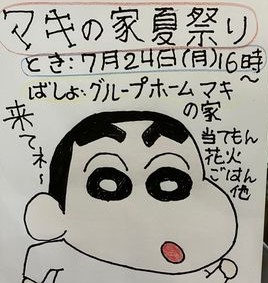 マキの家夏祭り
とき:7月24日(月)16時〜
ばしょ:グループホームマキ
の家
来てネ〜
当てもん
花火
ごはん
他